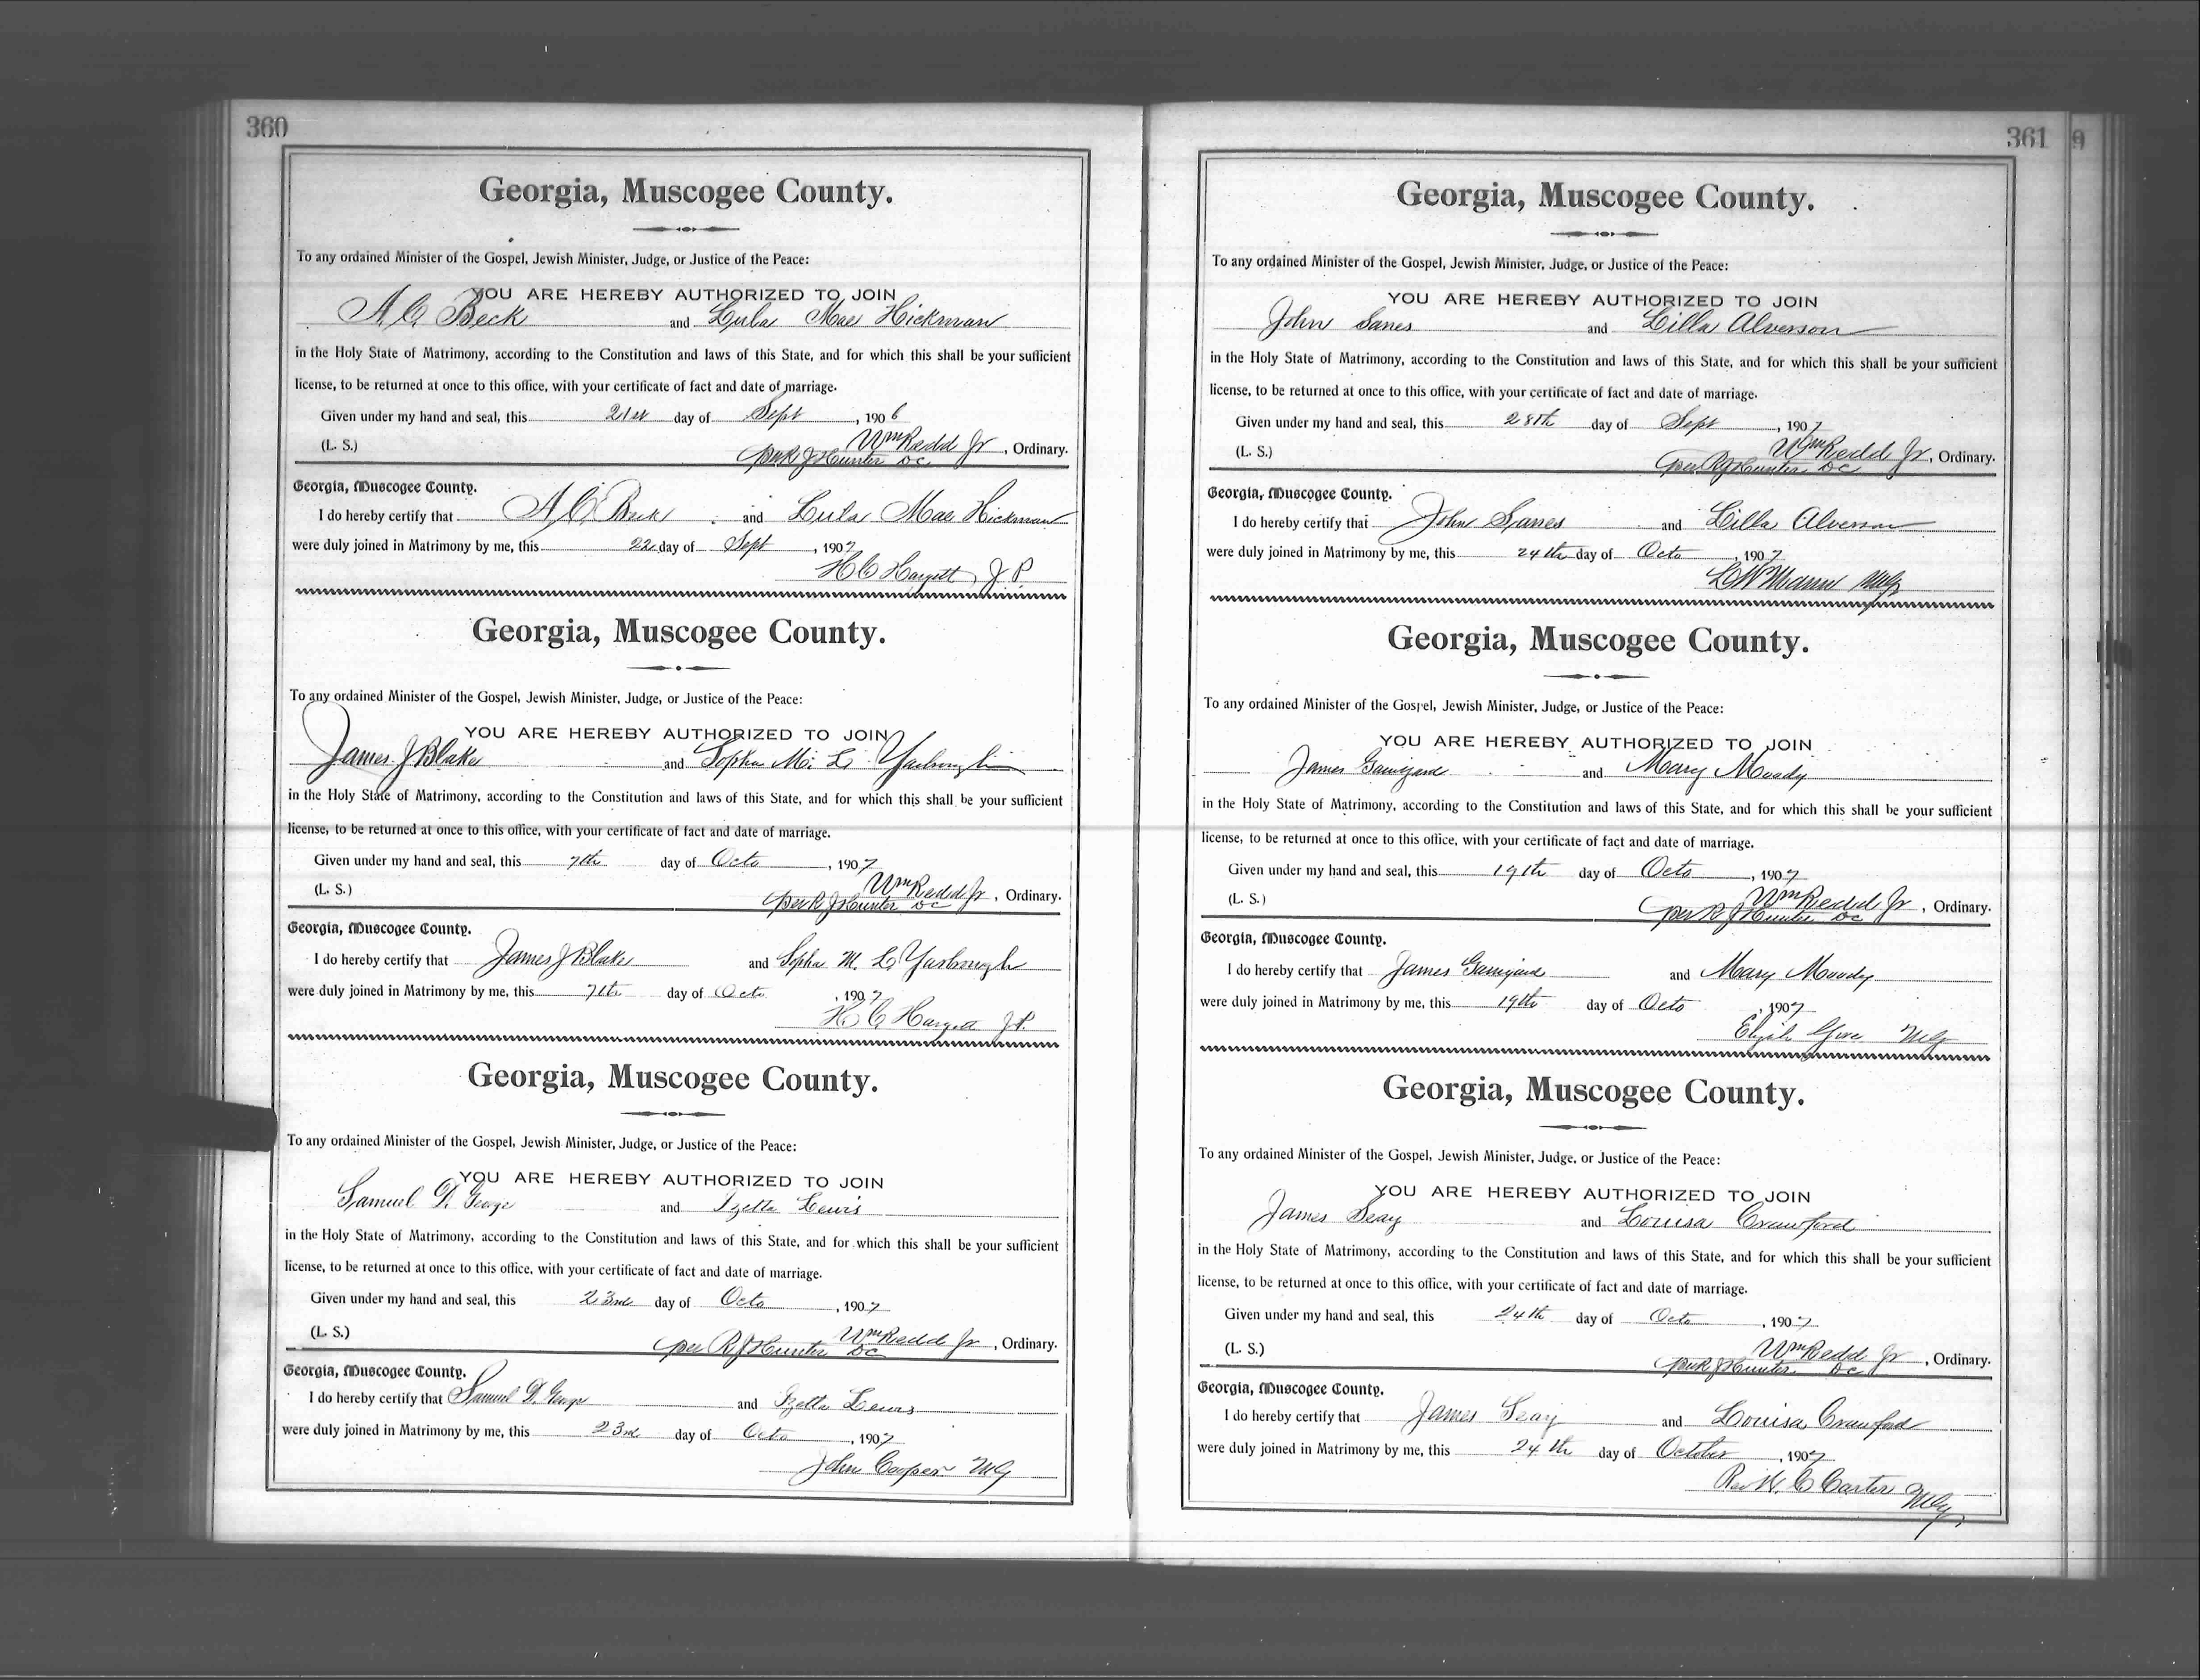 360
Georgia, Muscogee County.
To any ordained Minister of the Gospel, Jewish Minister, Judge, or Justice of the Peace:
YOU ARE HEREBY AUTHORIZED TO JOIN
A. C. Beck and Lula Mae Hickman
in the Holy State of Matrimony, according to the Constitution and laws of this State, and for which this shall be your sufficient
license, to be returned at once to this office, with your certificate of fact and date of marriage.
Given under my hand and seal, this 21st day of Sept, 1906
(L. S.) Wm Redd Jr, Ordinary.
per R J Hunter DC
Georgia, Muscogee County.
I do hereby certify that A. C. Beck and Lula Mae Hickman
were duly joined in Matrimony by me, this 22 day of Sept, 1907
H C Hargett J. P.
Georgia, Muscogee County.
To any ordained Minister of the Gospel, Jewish Minister, Judge, or Justice of the Peace:
YOU ARE HEREBY AUTHORIZED TO JOIN
James J Blake and Sopha M. L. Yarbrough
in the Holy State of Matrimony, according to the Constitution and laws of this State, and for which this shall be your sufficient
license, to be returned at once to this office, with your certificate of fact and date of marriage.
Given under my hand and seal, this 7th day of Octo, 1907
(L. S.) Wm Redd Jr, Ordinary.
per R J Hunter DC
Georgia, Muscogee County.
I do hereby certify that James J Blake and Sopha M. L. Yarbrough
were duly joined in Matrimony by me, this 7th day of Octo, 1907
H. C Hargett J. P.
Georgia, Muscogee County.
To any ordained Minister of the Gospel, Jewish Minister, Judge, or Justice of the Peace:
YOU ARE HEREBY AUTHORIZED TO JOIN
Samuel D. George and Izetta Lewis
in the Holy State of Matrimony, according to the Constitution and laws of this State, and for which this shall be your sufficient
license, to be returned at once to this office, with your certificate of fact and date of marriage.
Given under my hand and seal, this 23rd day of Octo, 1907
(L. S.) Wm Redd Jr, Ordinary.
per R J Hunter DC
Georgia, Muscogee County.
I do hereby certify that Samuel D. George and Izetta Lewis
were duly joined in Matrimony by me, this 23rd day of Octo, 1907
John Cooper MG
361
Georgia, Muscogee County.
To any ordained Minister of the Gospel, Jewish Minister, Judge, or Justice of the Peace:
YOU ARE HEREBY AUTHORIZED TO JOIN
John Sanes and Lilla Alverson
in the Holy State of Matrimony, according to the Constitution and laws of this State, and for which this shall be your sufficient
license, to be returned at once to this office, with your certificate of fact and date of marriage.
Given under my hand and seal, this 28th day of Sept, 1907
(L. S.) Wm Redd Jr, Ordinary.
per R J Hunter DC
Georgia, Muscogee County.
I do hereby certify that John Sanes and Lilla Alverson
were duly joined in Matrimony by me, this 24th day of Octo, 1907
MG
Georgia, Muscogee County.
To any ordained Minister of the Gospel, Jewish Minister, Judge, or Justice of the Peace:
YOU ARE HEREBY AUTHORIZED TO JOIN
James and Mary Moody
in the Holy State of Matrimony, according to the Constitution and laws of this State, and for which this shall be your sufficient
license, to be returned at once to this office, with your certificate of fact and date of marriage.
Given under my hand and seal, this 19th day of Octo, 1907
(L. S.) Wm Redd Jr, Ordinary.
per R J Hunter DC
Georgia, Muscogee County.
I do hereby certify that James and Mary Moody
were duly joined in Matrimony by me, this 19th day of Octo, 1907
MG
Georgia, Muscogee County.
To any ordained Minister of the Gospel, Jewish Minister, Judge, or Justice of the Peace:
YOU ARE HEREBY AUTHORIZED TO JOIN
James Seay and Louisa Crawford
in the Holy State of Matrimony, according to the Constitution and laws of this State, and for which this shall be your sufficient
license, to be returned at once to this office, with your certificate of fact and date of marriage.
Given under my hand and seal, this 24th day of Octo, 1907
(L. S.) Wm Redd Jr, Ordinary.
per R J Hunter DC
Georgia, Muscogee County.
I do hereby certify that James Seay and Louisa Crawford
were duly joined in Matrimony by me, this 24th day of October, 1907
Rev W. C Carter MG